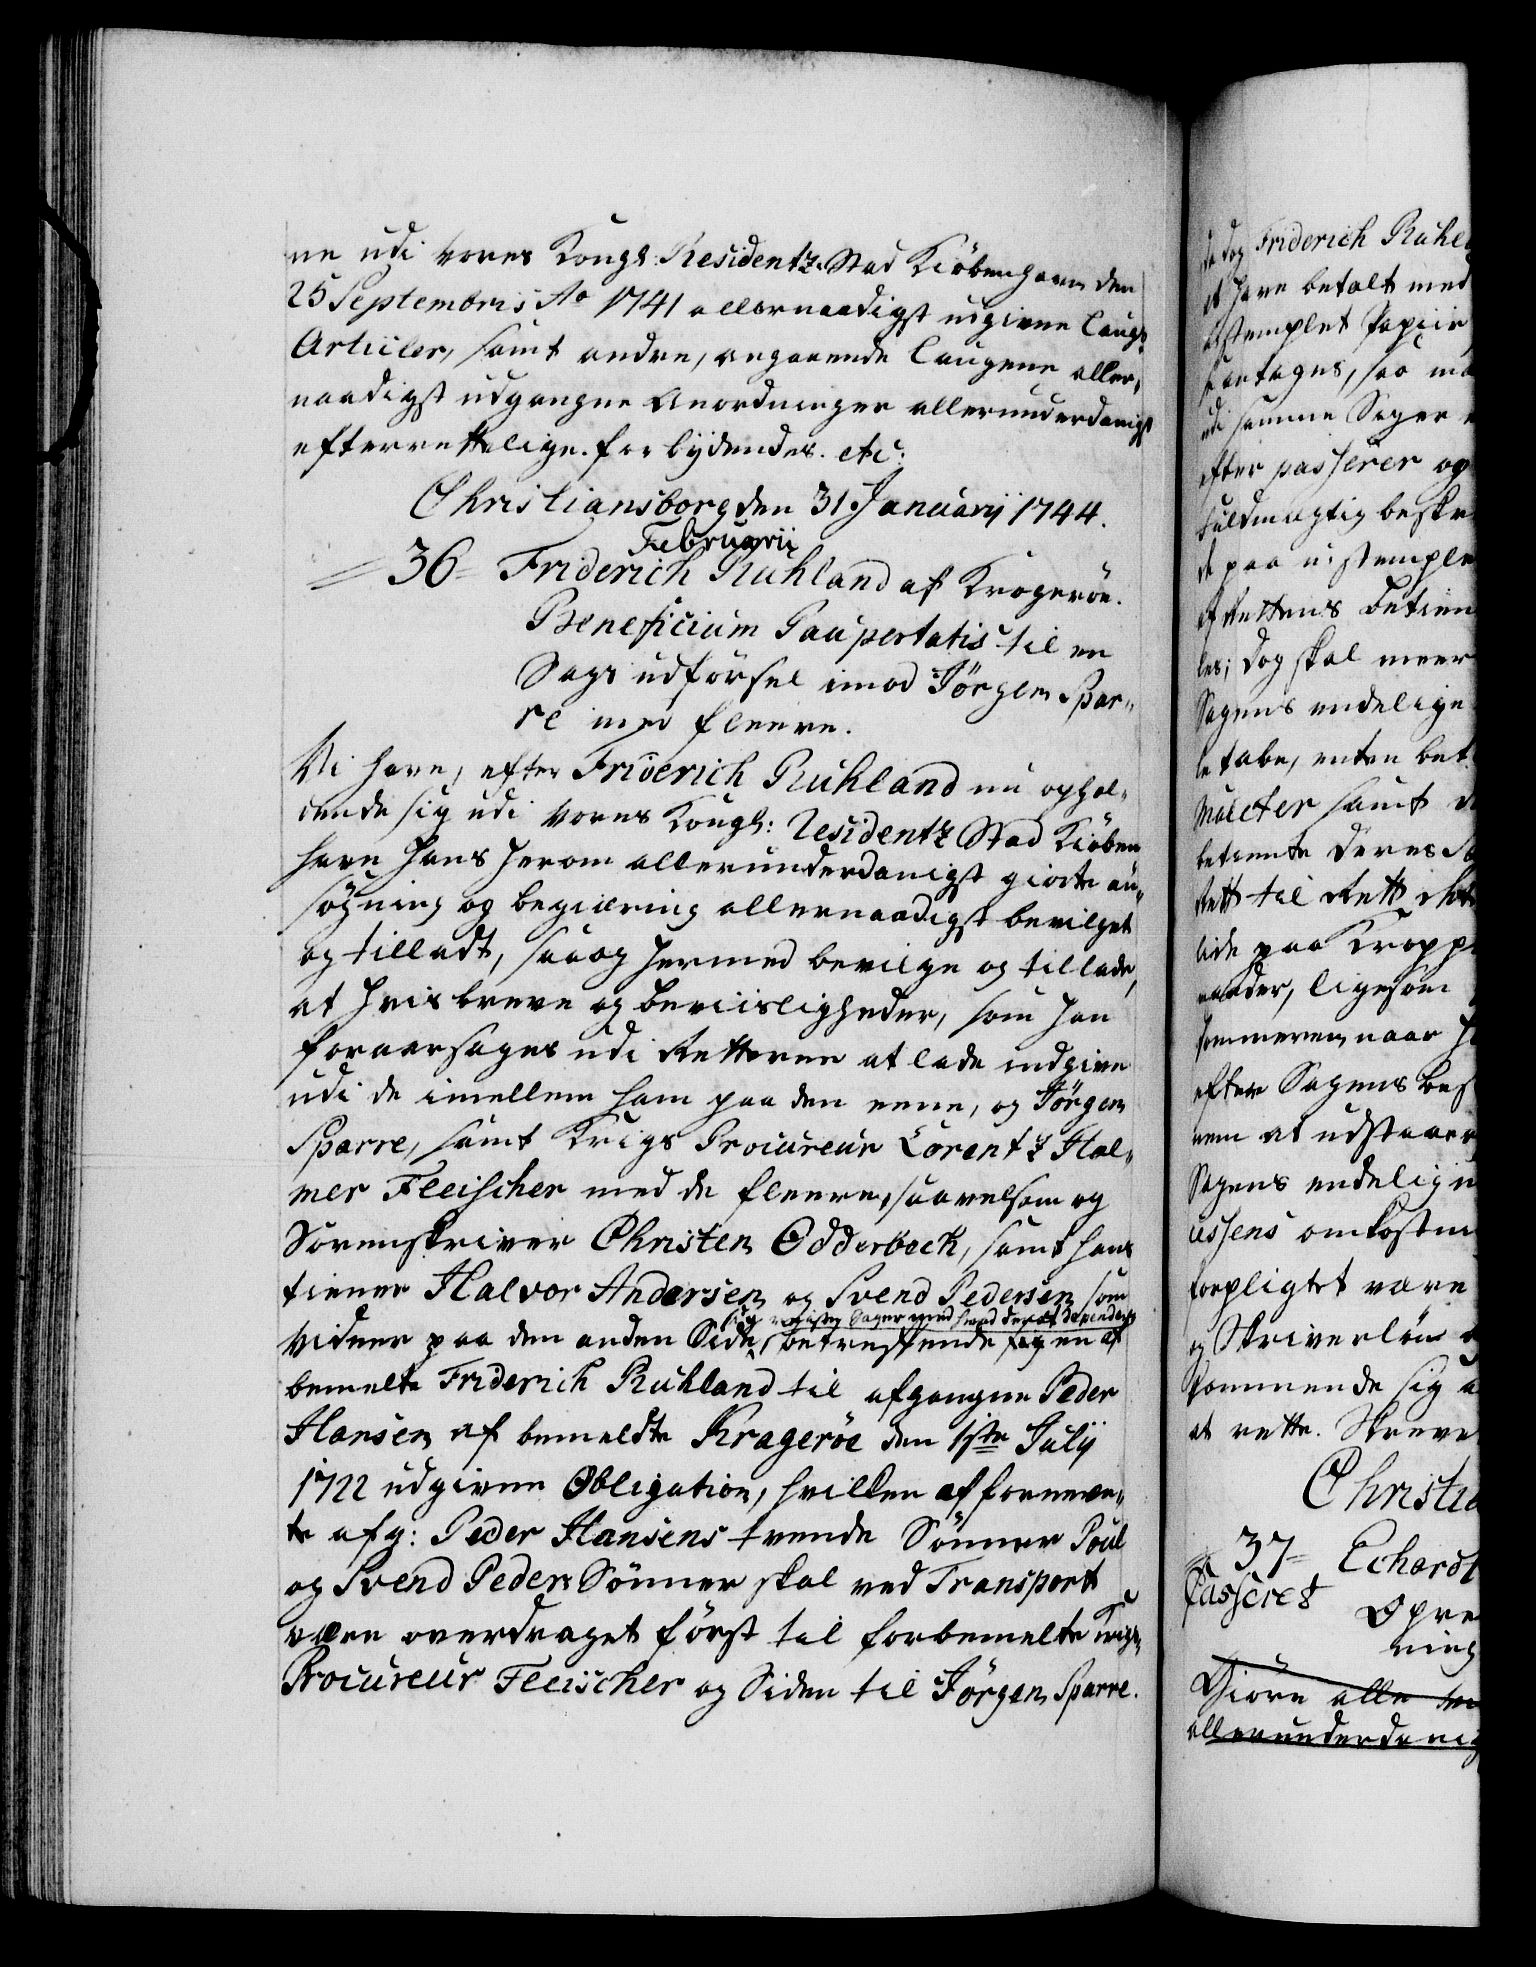 ne udi vores Kongl: Residentz Stad Kiöbenhavn den
25 Septembris Ao 1741 allernaadigst udgivne Laugs
Articler, samt andre, angaaende Laugene aller,
naadigst udgangne Anordninger allerunderdanigst
efterrettelige. forbydendes. etc:
Christiansborg den 31. Januarij 1744.
Februarii
36 Friderich Ruhland af Krogerøe.
Beneficium Paupertatis til en
Sags udførsel imod Jörgen Spar„
re med fleere.
Vi have, efter Friderich Ruhland nu ophol„
dende sig udi vores Kongl: Residentz Stad Kiöben
havn hans herom allerunderdanigst giorte an„
søgning og begiering allernaadigst bevilget
og tilladt, saa og hermed bevilge og tillade,
at hvis breve og beviisligheder, som han
foraarsages udi Retterne at lade indgive
udi de imellem ham paa den eene, og Jörgen
Sparre, samt Krigs Procureur Lorentz Hol„
mer Fleischer med de fleere, saavelsom og
Sorenskriver Christen Odderbeck, samt hans
tiener Halvor Andersen og Svend Pedersen som
Vidner paa den anden Side, betreffende en af
bemelte Friderich Ruhland til afgangne Peder
Hansen af bemeldte Kragerøe den 1ste Julij
1722 udgiven Obligation, hvilken af fornevn„
te afg: Peder Hansens tvende Sönner Poul
og Svend Peders Sönner skal ved Transport
være overdraget først til forbemelte Krigs
Procureur Fleischer og Siden til Jörgen Sparre.
Friderich Ruhl
at have betalt med
stemplet Papiir
udi samme Sager
efter passerer og
fuldmægtig beskr
de paa ustemple
af Rettens betien
les; dog skal meer
Sagens endelige
tabe, enten bet
Mulcter samt
betiente deres
Rett til Rett
lide paa Kropp
maader, ligesom
naar
efter Sagens
nem at udstaae
Sagens endelig
ussens omkostn
forpligtet være
og Skriverlön
kommende sig
at rette. Skrev
Christia
37 Echardt
Passeret
Opre
ning
Giöre alle
allerunderdanig